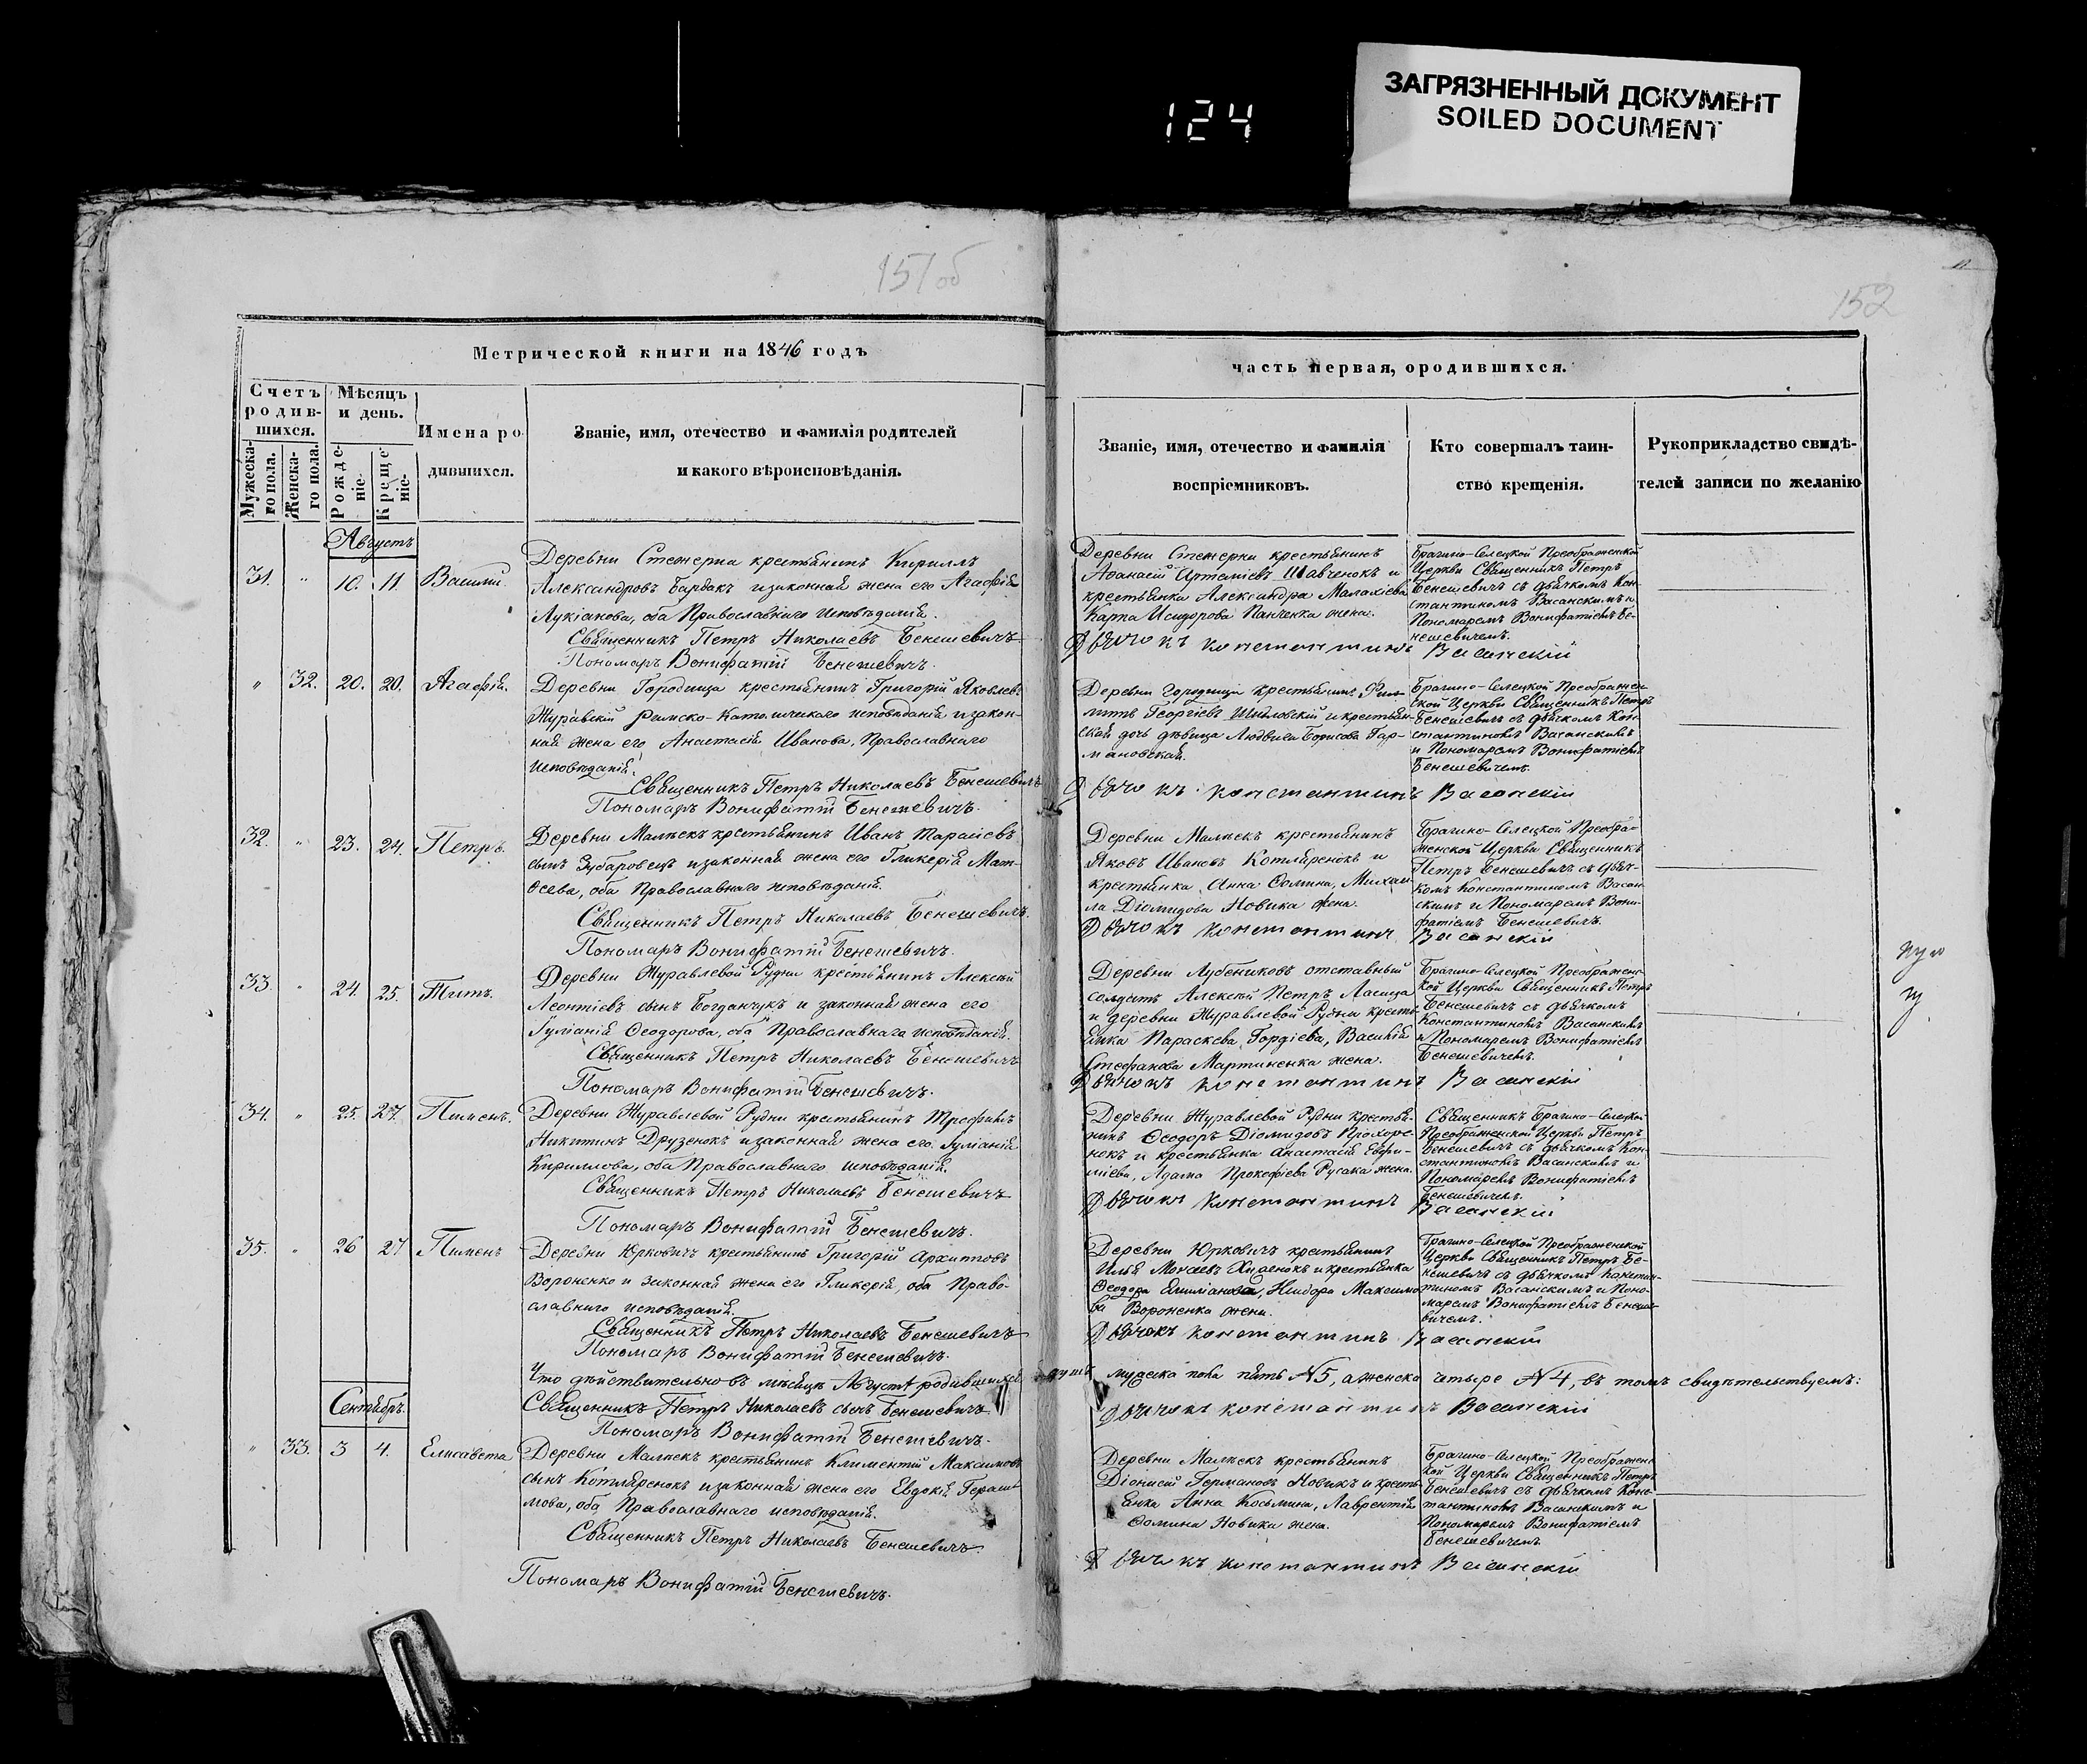 ЗАГРЯЗНЕННЫЙ ДОКУМЕНТ
SOILED DOCUMENT
124
151об
152
Метрической книги на 1846 годъ
часть первая, ородившихся.
Счетъ родив-шихся.
Мужеска-го пола.
Женска-го пола.
Мѣсяцъ и день.
Рожде-ніе.
Креще-ніе.
Имена ро-дившихся.
Званіе, имя, отечество и фамилія родителей
и какого вѣроисповѣданія.
Званіе, имя, отечество и фамилія
воспріемниковъ.
Кто совершалъ таин-
ство крещенія.
Рукоприкладство свидѣ-
телей записи по желанію
Августъ
31. " 10. 11. Василій.
Деревни Стежерна крестьянинъ Кириллъ
Александровъ Бардакъ и законная жена его Агафія
Лукіанова, оба Православнаго исповѣданія.
Священникъ Петръ Николаевъ Бенешевичъ
Пономаръ Вонифатій Бенешевичъ.
Деревни Стежерни крестьянинъ
Афанасій Артеміевъ Шавченокъ и
крестьянка Александра Малахіева
Карпа Исидорова Панченка жена.
Дьячокъ Константинъ Васанскій
Брагино-Селецкой Преображенской
Церкви Священникъ Петръ
Бенешевичъ съ дьячкомъ Кон-
стантиномъ Васанскимъ и
Пономаремъ Вонифатіемъ Бе-
нешевичемъ.
" 32. 20. 20. Агафія.
Деревни Городища крестьянинъ Григорій Яковлевъ
Журавскій Римско-Католическаго исповѣданія и закон-
ная жена его Анастасія Иванова, Православнаго
исповѣданія.
Священникъ Петръ Николаевъ Бенешевичъ
Пономаръ Вонифатій Бенешевичъ.
Деревни Городища крестьянинъ
Георгіевъ и крестьян-
ская дочь дѣвица Людвига Борисова Гар-
мановская.
Дьячокъ Константинъ Васанскій
Брагино-Селецкой Преображен-
ской Церкви Священникъ Петръ
Бенешевичъ съ дьячкомъ Кон-
стантиномъ Васанскимъ
и Пономаремъ Вонифатіемъ
Бенешевичемъ.
32. " 23. 24. Петръ.
Деревни Малѣекъ крестьянинъ Иванъ Тарасіевъ
сынъ Зубаровецъ и законная жена его Гликерія Мат-
ѳеева, оба Православнаго исповѣданія.
Священникъ Петръ Николаевъ Бенешевичъ.
Пономаръ Вонифатій Бенешевичъ.
Деревни Малѣекъ крестьянинъ
Яковъ Ивановъ Котляренокъ и
крестьянка Анна Ѳомина, Михаи-
ла Діомидова Новика жена.
Дьячокъ Константинъ Васанскій
Брагино-Селецкой Преобра-
женской Церкви Священникъ
Петръ Бенешевичъ съ дьяч-
комъ Константиномъ Васан-
скимъ и Пономаремъ Вони-
фатіемъ Бенешевичъ.
33. " 24. 25. Титъ.
Деревни Журавлевой Рудни крестьянинъ Алексѣй
Леонтіевъ сынъ Богданчукъ и законная жена его
Іуліанія Ѳеодорова, оба Православнаго исповѣданія.
Священникъ Петръ Николаевъ Бенешевичъ
Пономаръ Вонифатій Бенешевичъ.
Деревни Лубениковъ отставный
солдатъ Алексѣй Петръ Ласица
и деревни Журавлевой Рудни кресть-
янка Параскева Гордіева, Василія
Стефанова Мартиненка жена.
Дьячокъ Константинъ Васанскій
Брагино-Селецкой Преображенс-
кой Церкви Священникъ Петръ
Бенешевичъ съ дьячкомъ
Константиномъ Васанскимъ
и Пономаремъ Вонифатіемъ
Бенешевичемъ.
34. " 25. 27. Пименъ.
Деревни Журавлевой Рудни крестьянинъ Трофимъ
Никитинъ Друзенокъ и законная жена его Іуліанія
Кириллова, оба Православнаго исповѣданія.
Священникъ Петръ Николаевъ Бенешевичъ
Пономаръ Вонифатій Бенешевичъ.
Деревни Журавлевой Рудни крестья-
нинъ Ѳеодоръ Діомидовъ Прохоре-
нокъ и крестьянка Анастасія Евфи-
міева, Адама Прокофіева Русака жена.
Дьячокъ Константинъ Васанскій
Священникъ Брагино-Селецкой
Преображенской Церкви Петръ
Бенешевичъ съ дьячкомъ Кон-
стантиномъ Васанскимъ и
Пономаремъ Вонифатіемъ
Бенешевичемъ.
35. " 26 27 Пименъ
Деревни Юрковичъ крестьянинъ Григорій Архиповъ
Вороненко и законная жена его Гликерія, оба Право-
славнаго исповѣданія.
Священникъ Петръ Николаевъ Бенешевичъ
Пономаръ Вонифатій Бенешевичъ.
Деревни Юрковичъ крестьянинъ
Илья и крестьянка
Ѳеодора Емиліанова, Исидора Максимо-
ва Вороненка жена.
Дьячокъ Константинъ Васанскій
Брагино-Селецкой Преображенской
Церкви Священникъ Петръ Бе-
нешевичъ съ дьячкомъ Констан-
тиномъ Васанскимъ и Поно-
маремъ Вонифатіемъ Бенеше-
вичемъ.
Что дѣйствительно въ мѣсяцѣ Августѣ родившихся душъ мужеска пола пять №5, а женска четыре №4, въ томъ свидѣтельствуемъ:
Священникъ Петръ Николаевъ сынъ Бенешевичъ
Дьячокъ Константинъ Васанскій
Пономаръ Вонифатій Бенешевичъ.
Сентябрь.
" 33. 3 4. Елисавета
Деревни Малѣекъ крестьянинъ Климентій Максимовъ
сынъ Котляренокъ и законная жена его Евдокія Гераси-
мова, оба Православнаго исповѣданія.
Священникъ Петръ Николаевъ Бенешевичъ.
Пономаръ Вонифатій Бенешевичъ.
Деревни Малѣекъ крестьянинъ
Діонисій Германовъ Новикъ и кресть-
янка Анна Косьмина, Лаврентія
Ѳомина Новика жена.
Дьячокъ Константинъ Васанскій
Брагино-Селецкой Преображенс-
кой Церкви Священникъ Петръ
Бенешевичъ съ дьячкомъ Конс-
тантиномъ Васанскимъ и
Пономаремъ Вонифатіемъ
Бенешевичемъ.